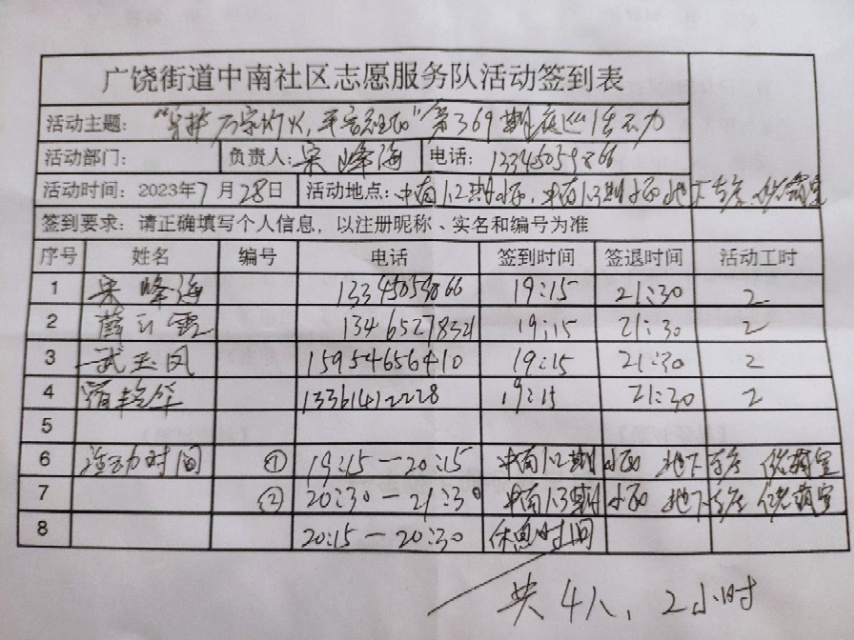 广饶街道中南社区志愿服务队活动签到表
活动主题： 万家灯火，平安 "第369期夜巡活动
活动部门： 负责人：宋峰海 电话：13345059866
活动时间：2023年7月28日 活动地点：中南1.2期小区，中南1.3期小区地下车库 储藏室
签到要求：请正确填写个人信息，以注册昵称、实名和编号为准
序号 姓名 编号 电话 签到时间 签退时间 活动工时
1 宋峰海 13345059866 19:15 21:30 2
2 13465278321 19:15 21:30 2
3 武玉凤 15954656410 19:15 21:30 2
4 13361412228 19:15 21:30 2
5
6 活动时间 ① 19:15—20:15 中南1.2期小区 地下车库 储藏室
7 ② 20:30—21:30 中南1.3期小区 地下车库 储藏室
8 20:15—20:30 休息时间
共4人，2小时